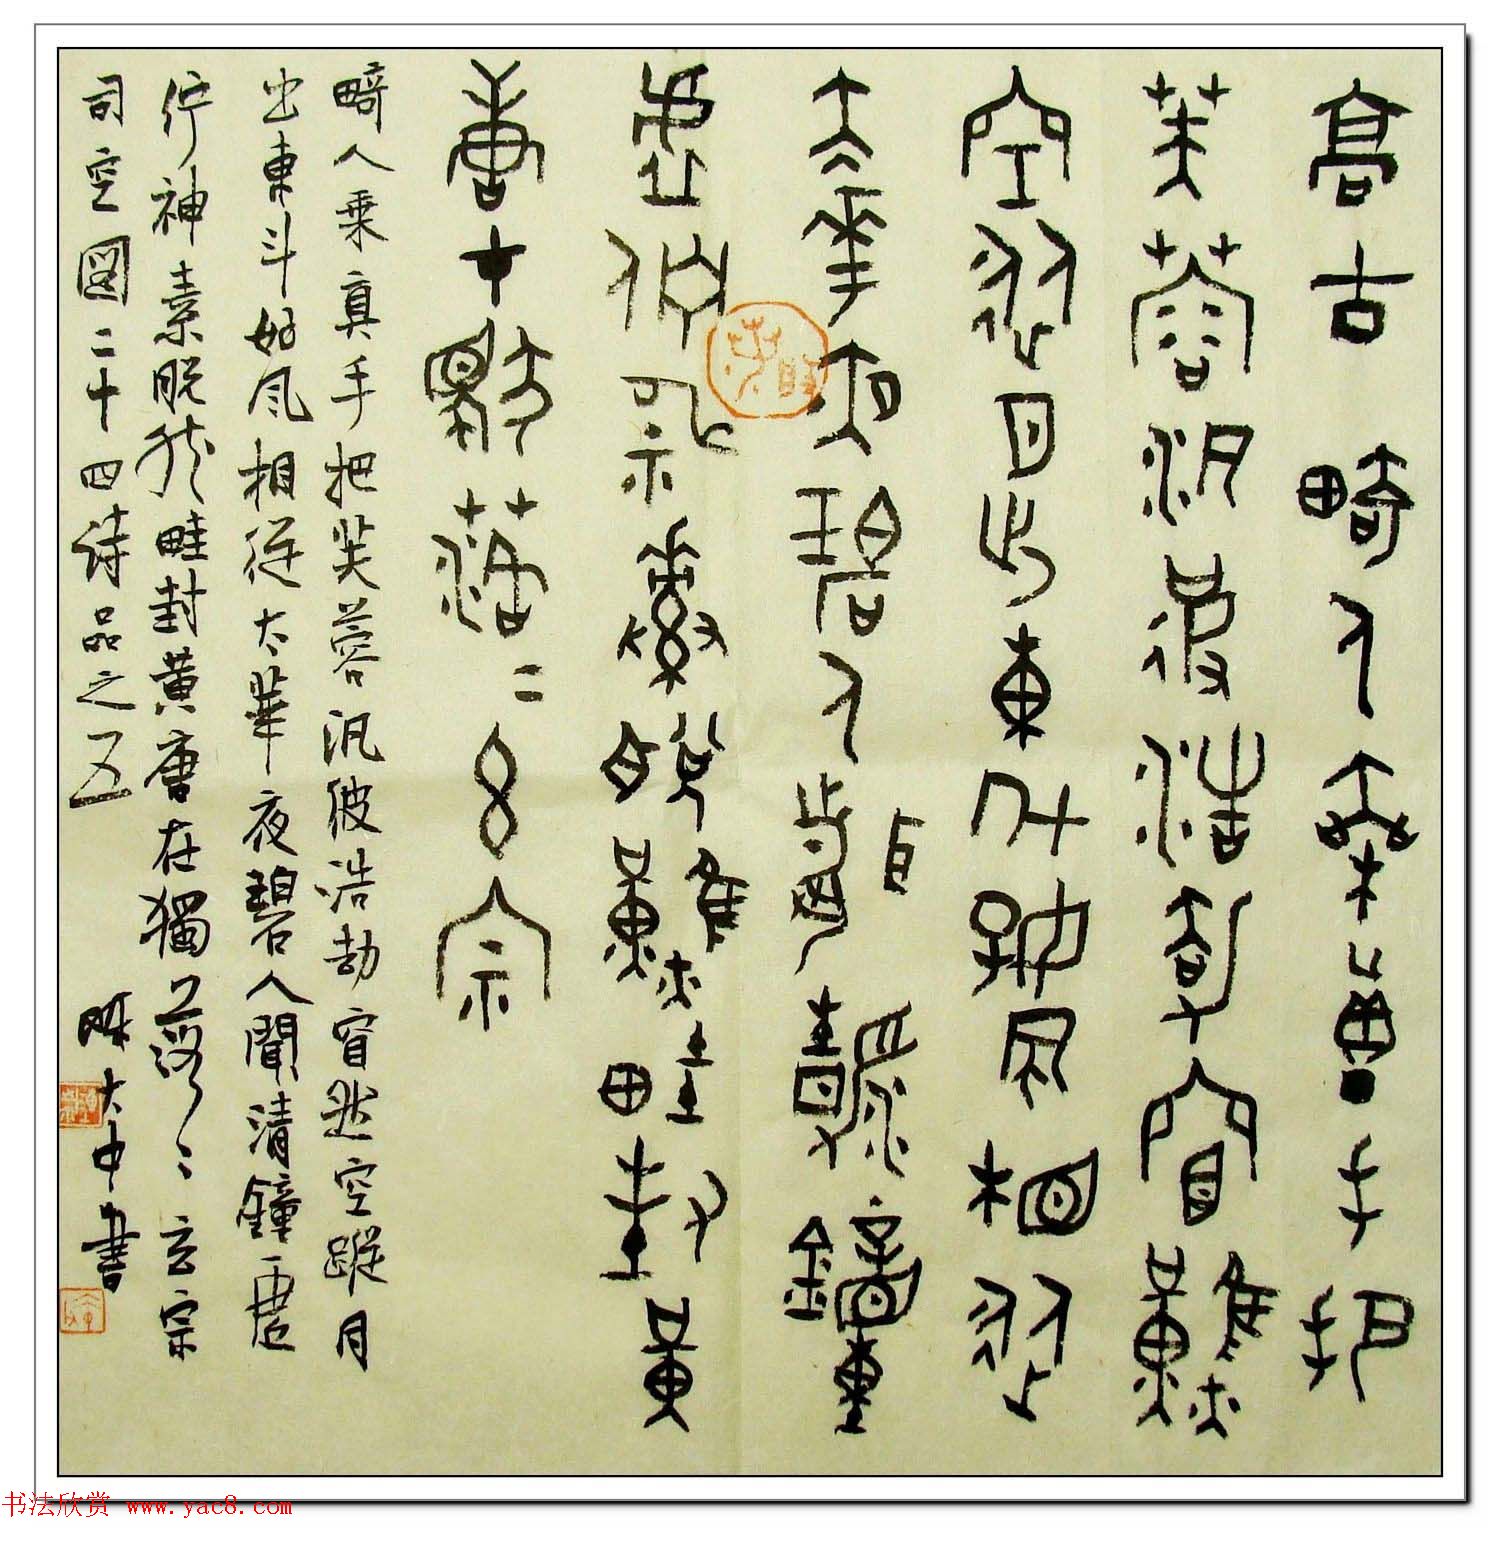 高古 畸人乘真手把
芙蓉汎彼浩劫窅然
空從月出東斗好風相從
太華夜碧人聞清鐘
虛佇神素脫然畦封黃
唐在獨落〻玄宗
畸人乘真手把芙蓉汎彼浩劫窅然空蹤月
出東斗好風相從太華夜碧人聞清鐘虛
佇神素脫然畦封黃唐在獨落〻玄宗
司空圖二十四詩品之五 陈大中書
书法欣赏 www.yac8.com